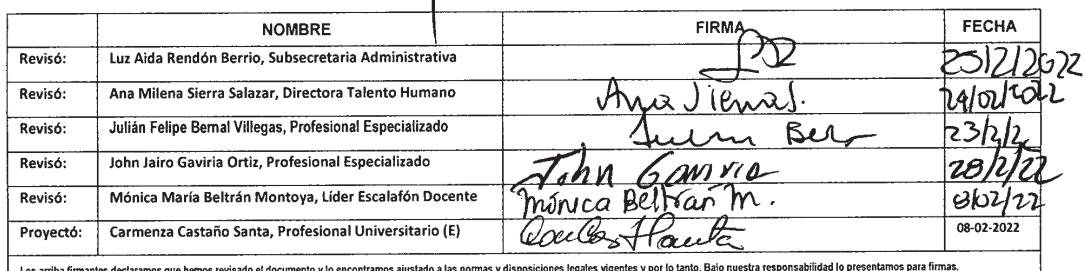 NOMBRE FIRMA FECHA
Revisó: Luz Aida Rendón Berrio, Subsecretaria Administrativa 25/2/2022
Revisó: Ana Milena Sierra Salazar, Directora Talento Humano Ana Sierra S. 24/02/2022
Revisó: Julián Felipe Bernal Villegas, Profesional Especializado 23/2/2
Revisó: John Jairo Gaviria Ortiz, Profesional Especializado John Gaviria 28/2/22
Revisó: Mónica María Beltrán Montoya, Líder Escalafón Docente Mónica Beltrán M. 8/02/22
Proyectó: Carmenza Castaño Santa, Profesional Universitario (E) 08-02-2022
Los arriba firmantes declaramos que hemos revisado el documento y lo encontramos ajustado a las normas y disposiciones legales vigentes y por lo tanto, Bajo nuestra responsabilidad lo presentamos para firmas.